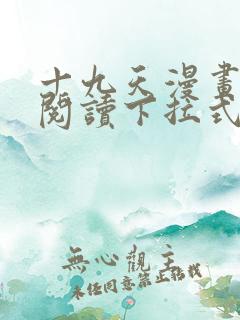 十九天漫畫
閱讀下拉式
無心觀主
未經同意禁止轉載